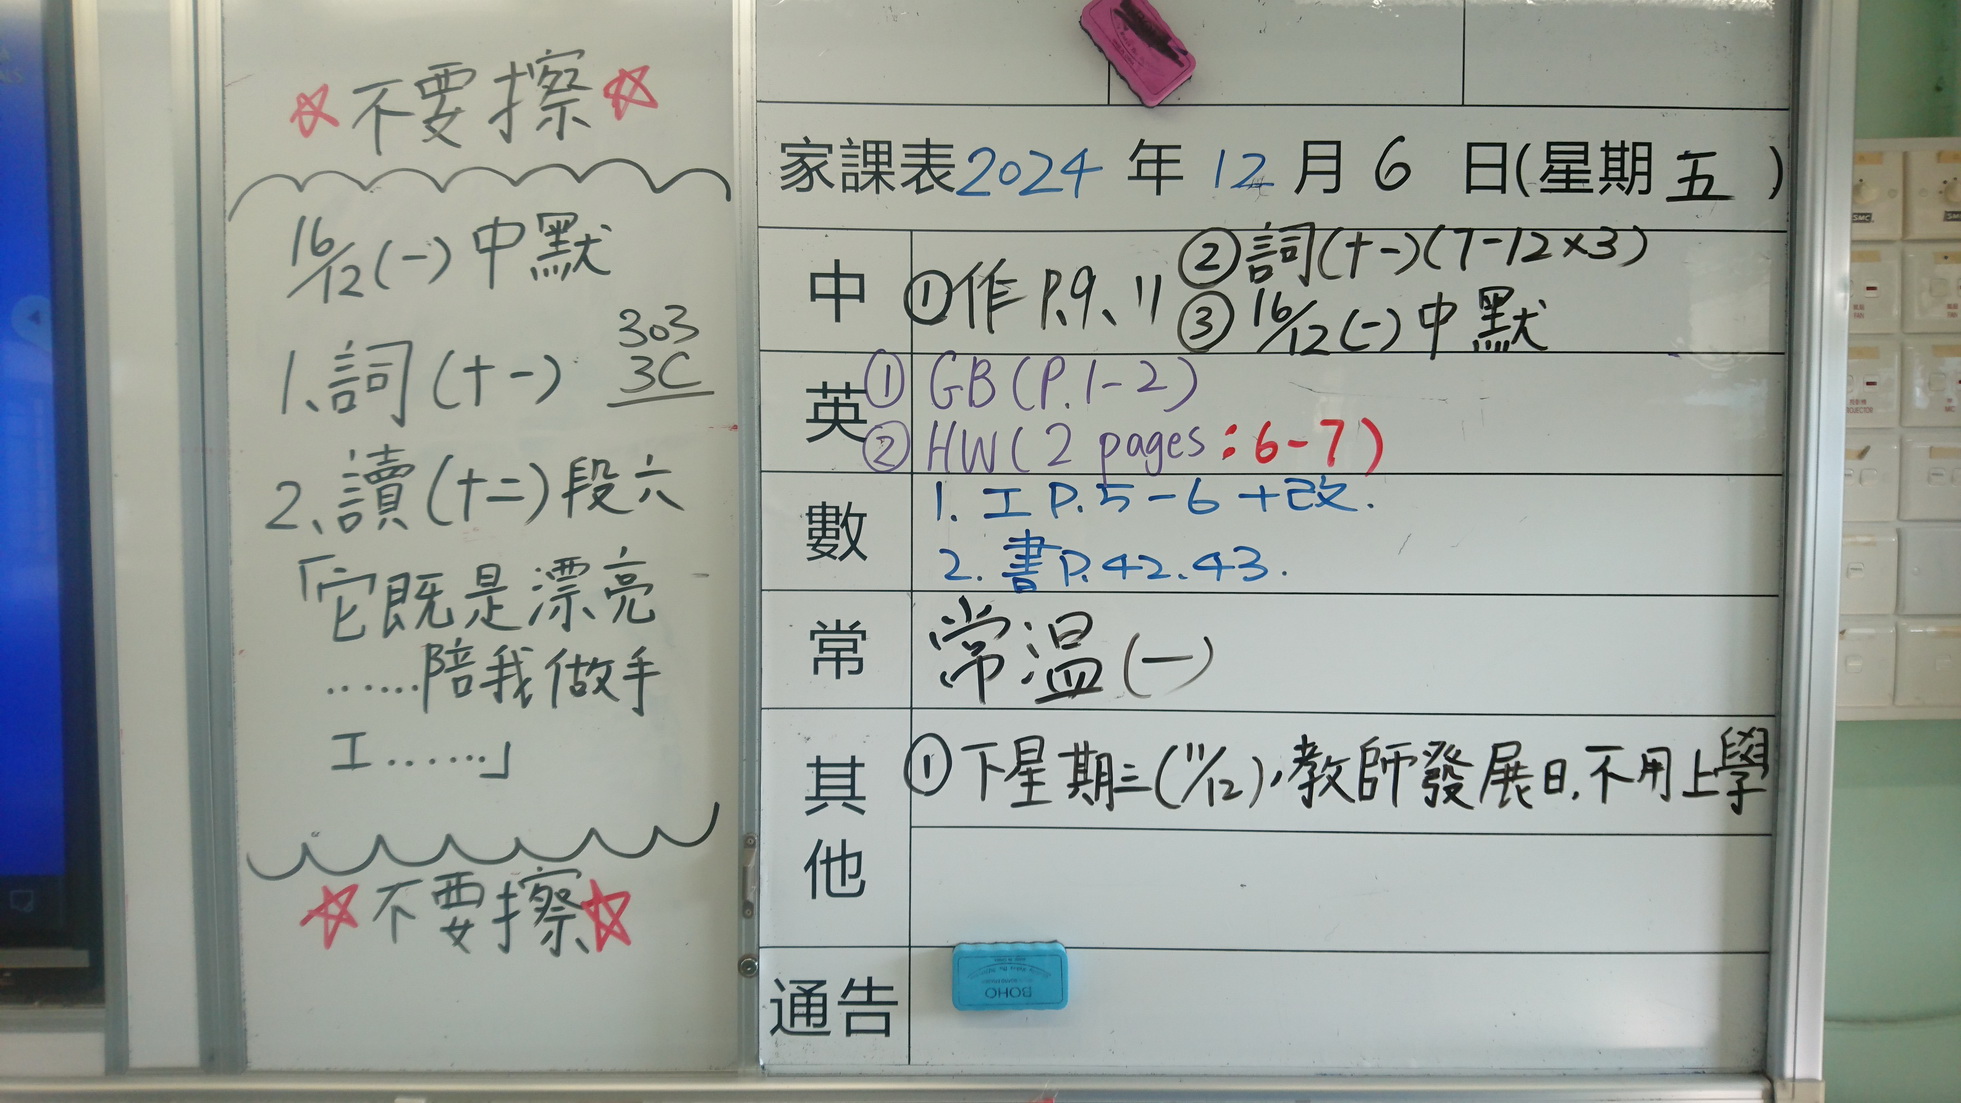 不要擦
16/12(一)中默
303
3C
1、詞(十一)
2、讀(十二)段六
「它既是漂亮
......陪我做手
工......」
不要擦
家課表2024年12月6日(星期五)
中
①作P.9、11 ②詞(十一)(7-12×3)
③16/12(一)中默
英
① GB(P.1-2)
② HW(2 pages:6-7)
數
1. 工P.5-6+改.
2. 書P.42.43.
常
常温(一)
其他
①下星期三(11/12),教師發展日,不用上學
通告
BOHO